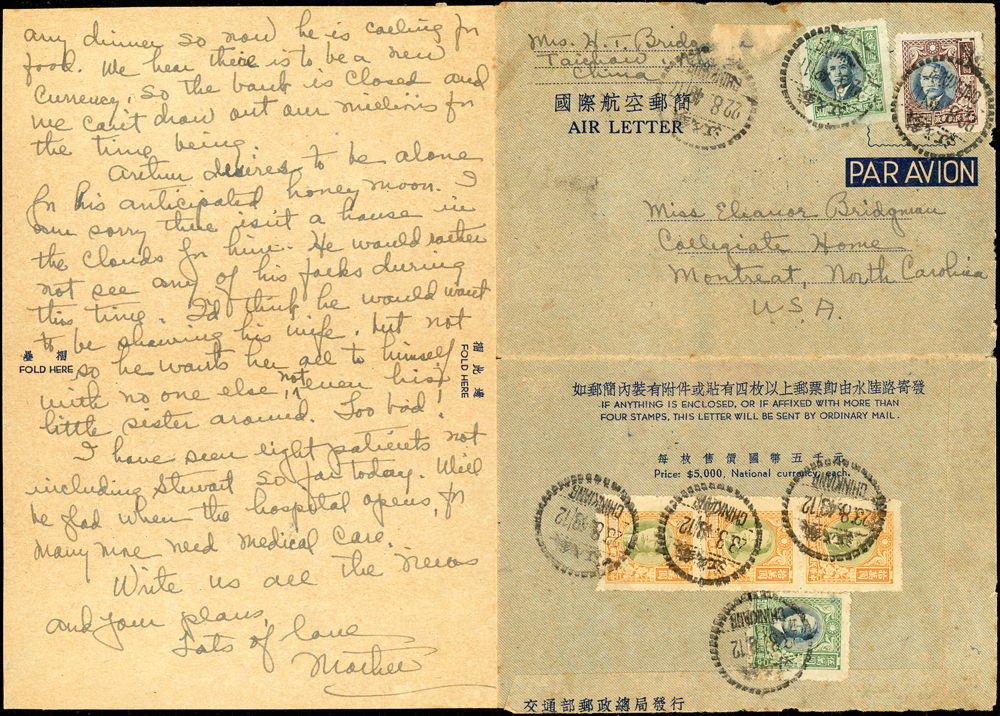 any dinner so now he is calling for
food. We hear there is to be a new
currency, so the bank is closed and
we can't draw out our millions for
the time being.
Arthur desires to be alone
for his anticipated honey moon. I
am sorry there isn't a house in
the clouds for him. He would rather
not see any of his folks during
this time. I'd think he would want
to be showing his wife, but not
so he wants her all to himself
with no one else, not even his
little sister around. Too bad!
I have seen eight patients not
including Stewart so far today. Will
be glad when the hospital opens, for
many more need medical care.
Write us all the news
and your plans,
Lots of love
Mother
摺疊
FOLD HERE
FOLD HERE
Mrs. H. T. Bridgman
China
國際航空郵簡
AIR LETTER
PAR AVION
Miss Eleanor Bridgman
Collegiate Home
Montreat, North Carolina
U.S.A.
如郵簡內裝有附件或貼有四枚以上郵票即由水陸路寄發
IF ANYTHING IS ENCLOSED, OR IF AFFIXED WITH MORE THAN
FOUR STAMPS, THIS LETTER WILL BE SENT BY ORDINARY MAIL.
每枚售價國幣五千元
Price: $5,000, National currency, each.
CHINKIANG
CHINKIANG
CHINKIANG
CHINKIANG
交通部郵政總局發行